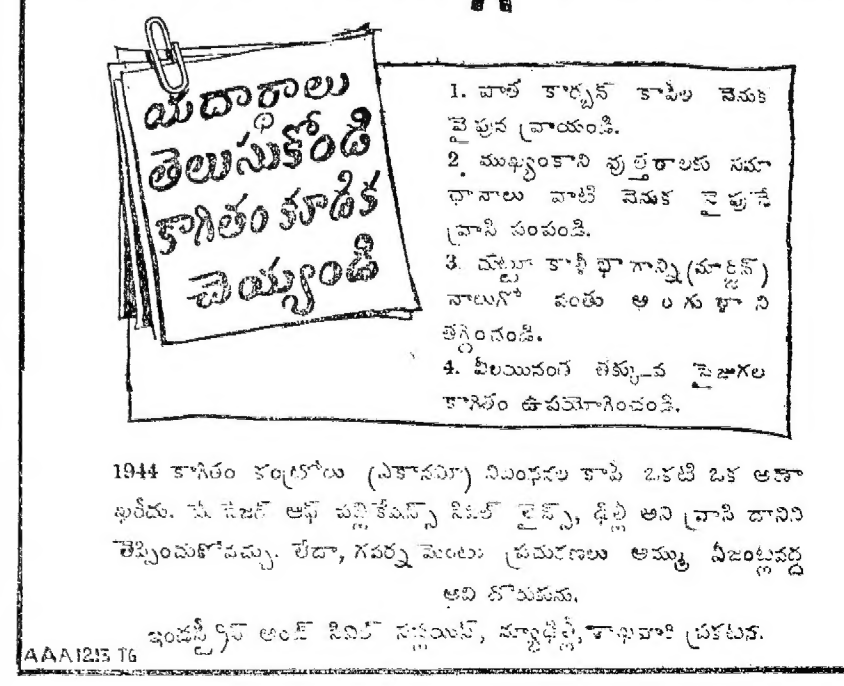 యదార్థాలు
తెలుసుకోండి
కాగితం కూడిక
చెయ్యండి
1. పాత కార్బన్ కాపీల వెనుక
వైపున వ్రాయండి.
2. ముఖ్యంకాని వుత్తరాలకు సమా
ధానాలు వాటి వెనుక వైపునే
వ్రాసి పంపండి.
3. చుట్టూ కాళీ భాగాన్ని (మార్జిన్)
నాలుగో వంతు అంగుళాని
తగ్గించండి.
4. వీలయినంత తక్కువ సైజుగల
కాగితం ఉపయోగించండి.
1944 కాగితం కంట్రోలు (ఎకానమీ) నిబంధనల కాపీ ఒకటి ఒక అణా
ఖరీదు. మేనేజర్ ఆఫ్ పబ్లికేషన్స్ సివిల్ లైన్స్, ఢిల్లీ అని వ్రాసి దానిని
తెప్పించుకోవచ్చు. లేదా, గవర్నమెంటు ప్రచురణలు అమ్ము ఏజంట్లవద్ద
అవి దొరుకును.
ఇండస్ట్రీస్ అండ్ సివిల్ సప్లయిస్, న్యూఢిల్లీ, శాఖవారి ప్రకటన.
AAA1215 TG